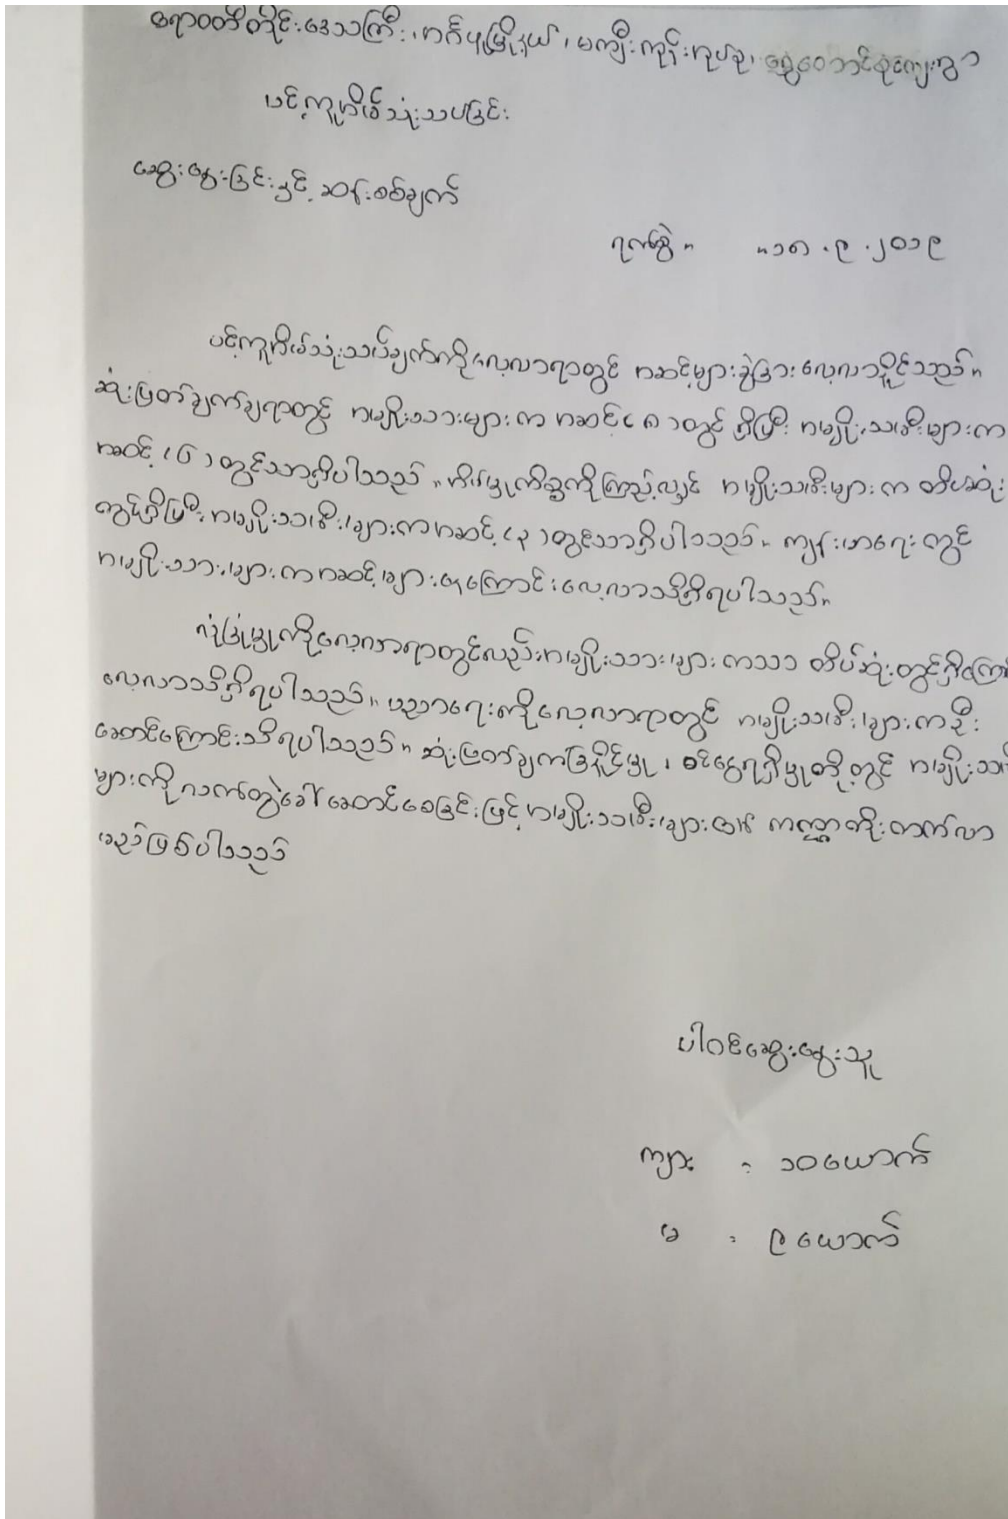 ဧရာဝတီတိုင်းဒေသကြီး၊ အင်္ဂပူမြို့နယ်၊ မကျီးကုန်းအုပ်စု၊ ရွှေတောင်စုကျေးရွာ
ပင့်ကူအိမ်သုံးသပ်ခြင်း
ဆွေးနွေးခြင်းနှင့် ဆန်းစစ်ချက်
ရက်စွဲ။ ။၁၈.၉.၂၀၁၉
ပင့်ကူအိမ်သုံးသပ်ချက်ကိုလေ့လာရာတွင် အဆင့်များခွဲခြားလေ့လာနိုင်သည်။
ဆုံးဖြတ်ချက်ချရာတွင် အမျိုးသားများက အဆင့်(၈)တွင်ရှိပြီး အမျိုးသမီးများက
အဆင့်(၆)တွင်သာရှိပါသည်။ အိမ်မှုကိစ္စကိုကြည့်လျှင် အမျိုးသမီးများက ထိပ်ဆုံး
တွင်ရှိပြီး အမျိုးသမီးများကအဆင့်(၃)တွင်သာရှိပါသည်။ ကျန်းမာရေးတွင်
အမျိုးသားများကအဆင့်များနေကြောင်းလေ့လာသိရှိရပါသည်။
လုံခြုံမှုကိုလေ့လာရာတွင်လည်းအမျိုးသားများကသာ ထိပ်ဆုံးတွင်ရှိကြော
လေ့လာသိရှိရပါသည်။ ပညာရေးကိုလေ့လာရာတွင် အမျိုးသမီးများကဦး
ဆောင်ကြောင်းသိရပါသည်။ ဆုံးဖြတ်ချက်ချနိုင်မှု၊ ဝင်ငွေရရှိမှုတို့တွင် အမျိုးသမီ
များကိုလက်တွဲခေါ်ဆောင်စေခြင်းဖြင့်အမျိုးသမီးများ၏ ကဏ္ဍတိုးတက်လာ
မည်ဖြစ်ပါသည်
ပါဝင်ဆွေးနွေးသူ
ကျား - ၁၀ယောက်
မ - ၉ယောက်